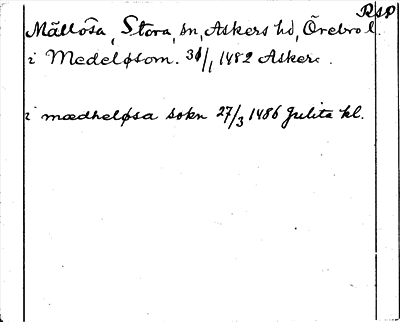 RSP
Mällösa, Stora, sn, Askers hd, Örebro l.
i Medeløsom. 31/1 1482 Asker.
i mædheløsa sokn 27/3 1486 Julita kl.